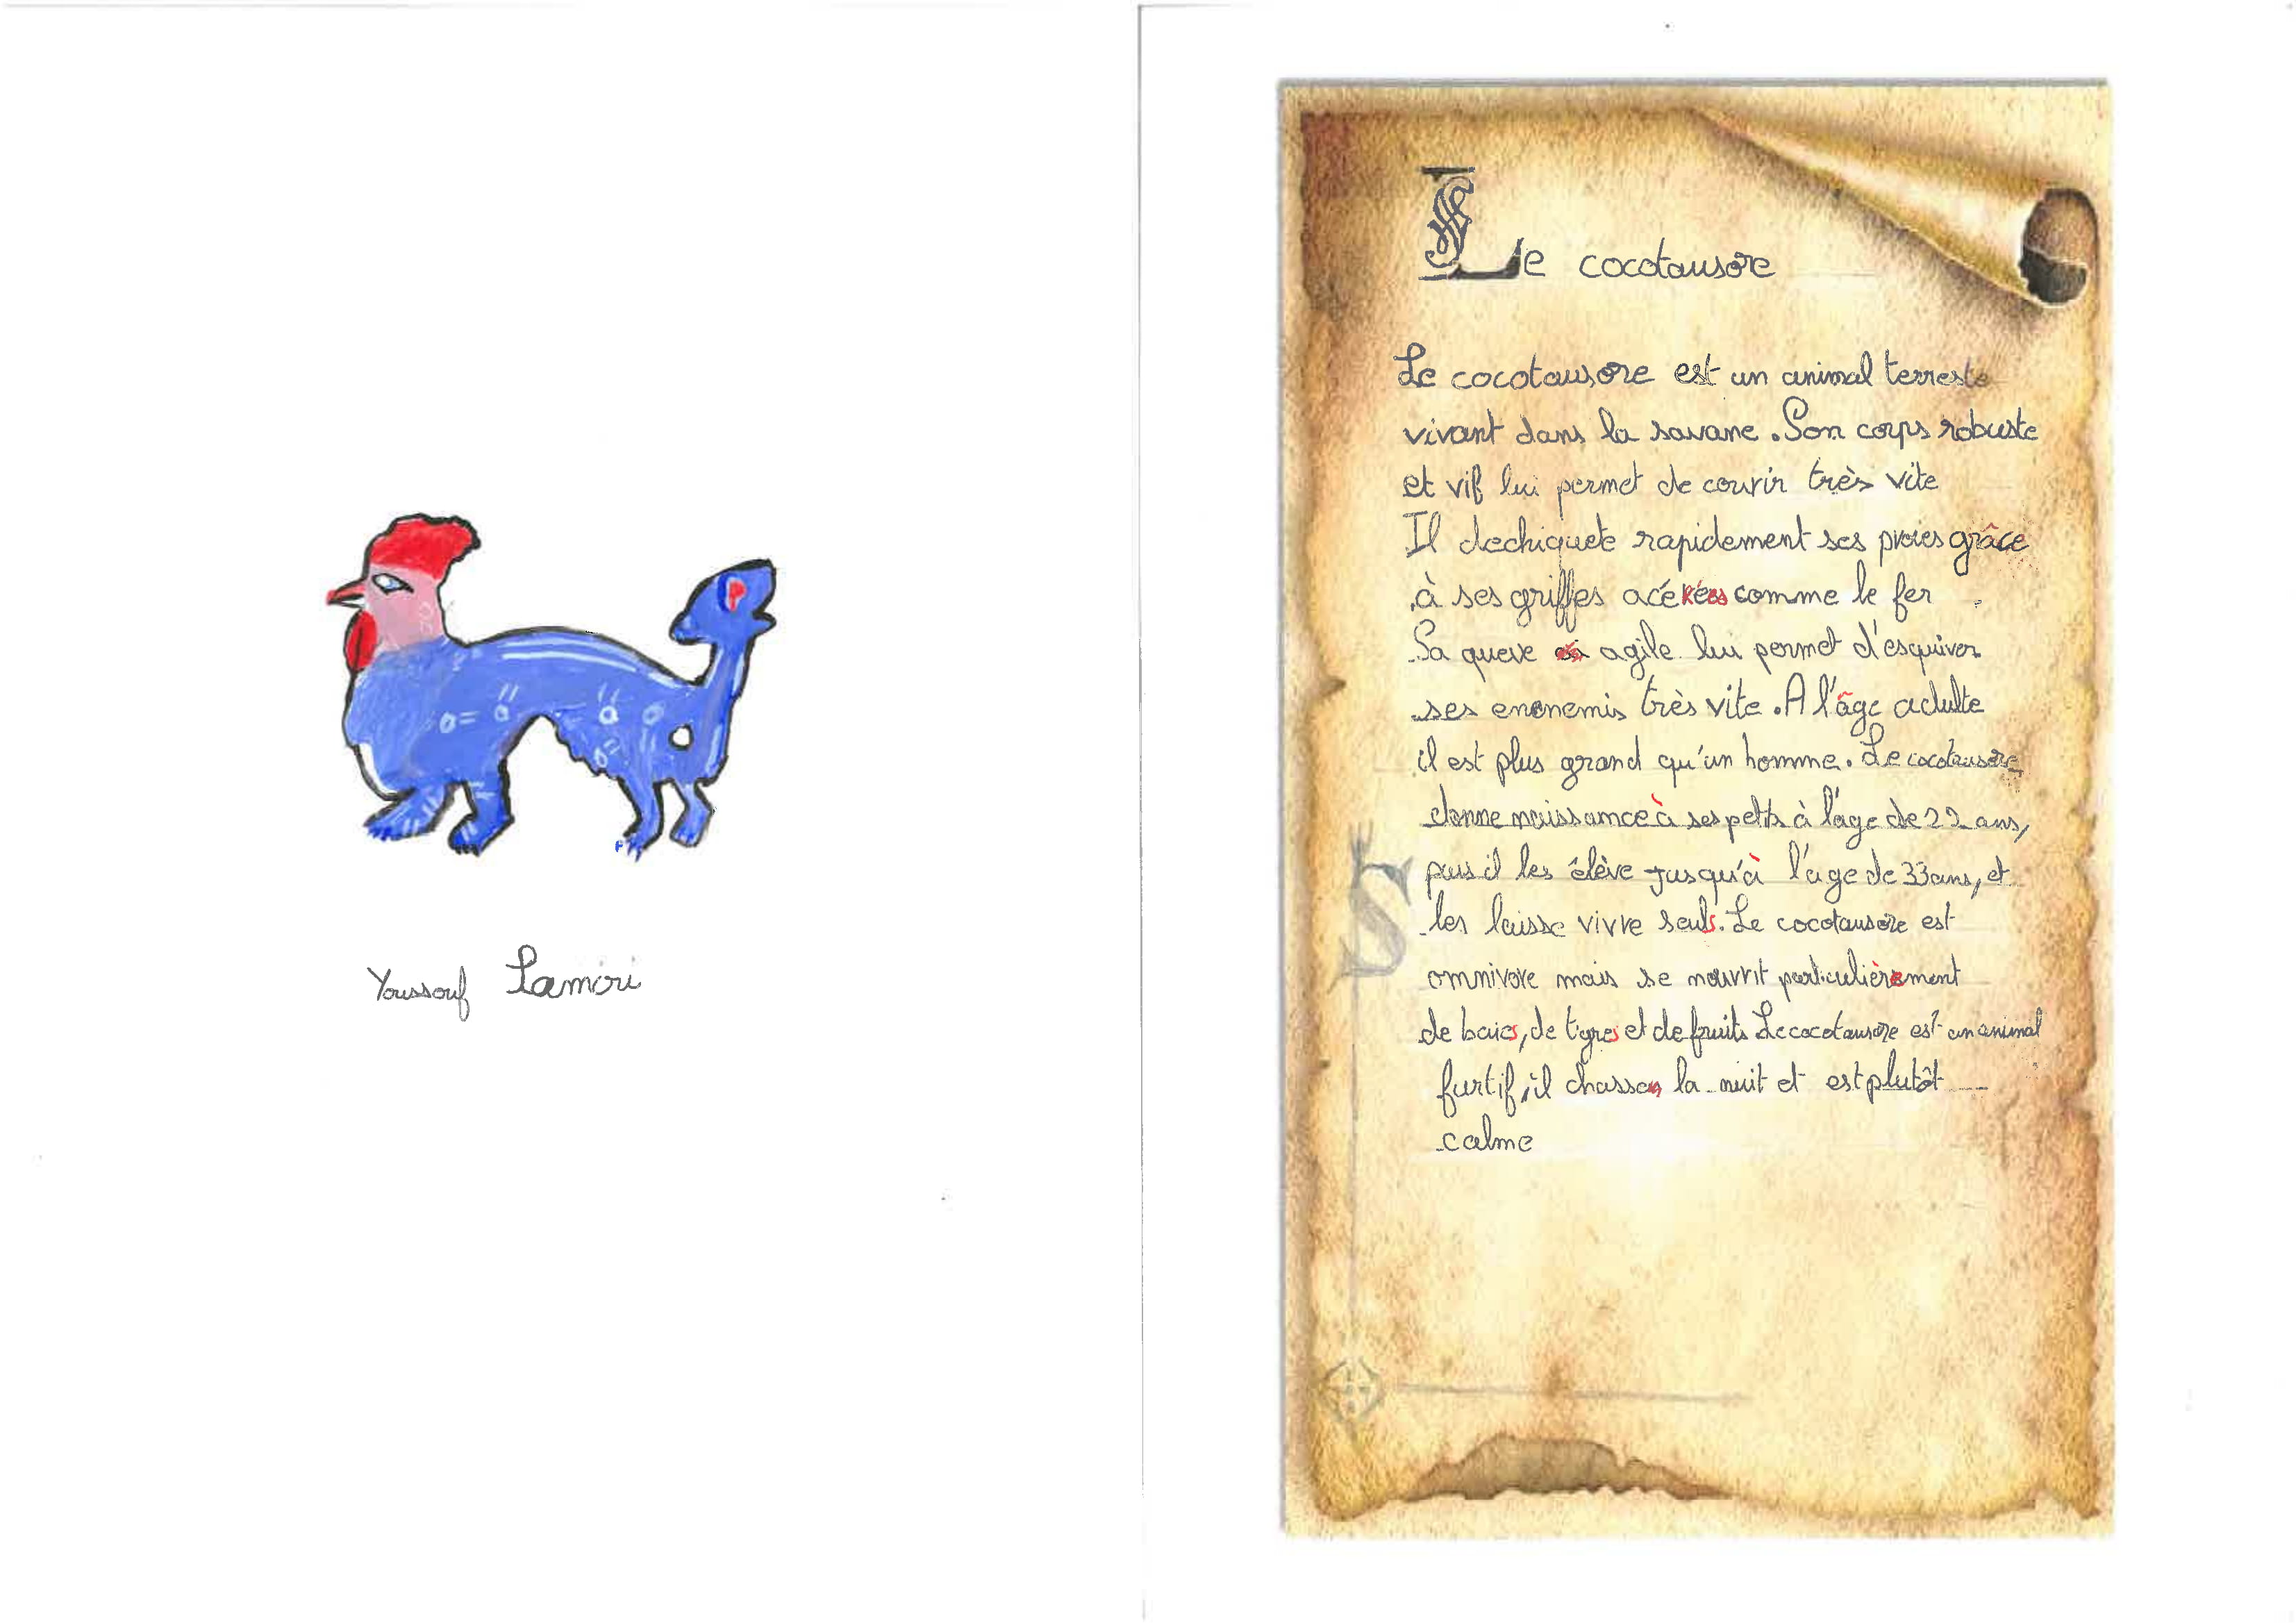 Youssouf Lamiri
Le cocotausore
Le cocotausore est un animal terreste
vivant dans la savane. Son corps robuste
et vif lui permet de courir très vite
Il dechiquete rapidement ses proies grâce
à ses griffes acérées comme le fer
Sa queue agile lui permet d'esquiver
ses ennemis très vite. A l'âge adulte
il est plus grand qu'un homme. Le cocotausore
donne naissance à ses petits à l'age de 22 ans,
puis il les élève jusqu'à l'age de 33 ans, et
les laisse vivre seuls. Le cocotausore est
omnivore mais se nourrit particulièrement
de baies, de tigres et de fruits Le cocotausore est un animal
furtif, il chasse la nuit et est plutôt
calme
S